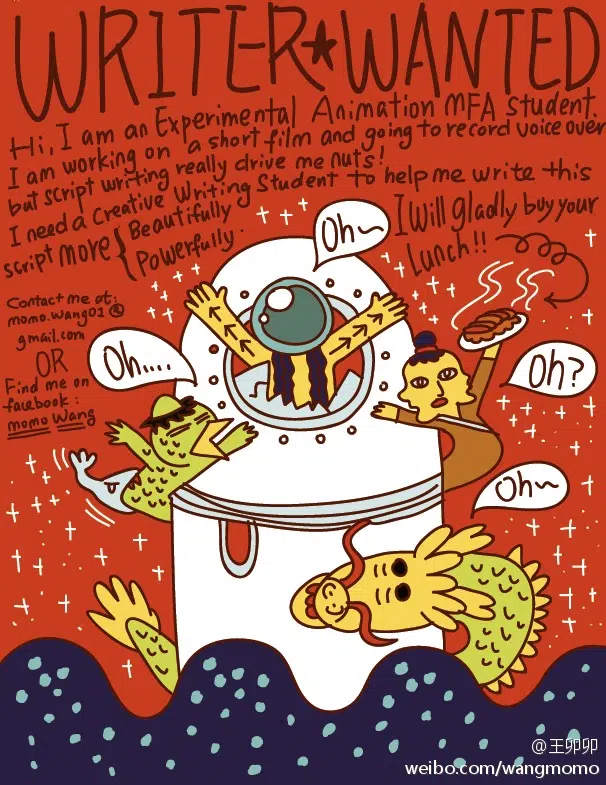 WRITER★WANTED
Hi, I am an Experimental Animation MFA Student.
I am working on a short film and going to record voice over
but script writing really drive me nuts!
I need a Creative Writing Student to help me write this
script more { Beautifully
Powerfully.
I will gladly buy your
Lunch!!
Contact me at:
momo.wang01@
gmail.com
OR
Find me on
facebook:
momo Wang
Oh~
Oh....
Oh?
Oh~
@王卯卯
weibo.com/wangmomo